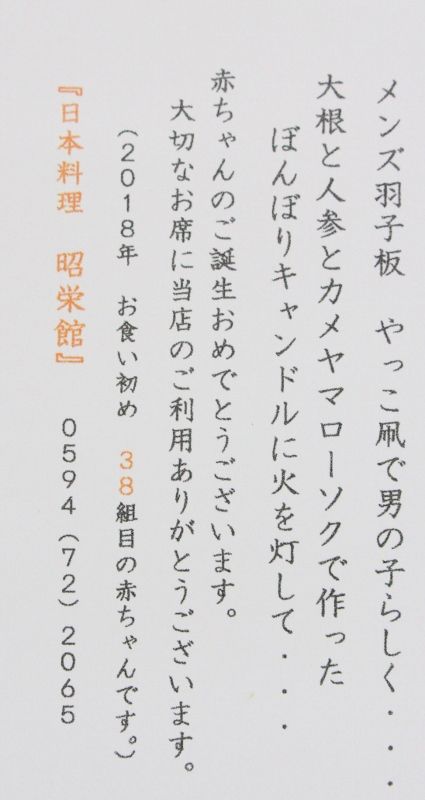 メンズ羽子板　やっこ凧で男の子らしく・・・
大根と人参とカメヤマローソクで作った
ぼんぼりキャンドルに火を灯して・・・
赤ちゃんのご誕生おめでとうございます。
大切なお席に当店のご利用ありがとうございます。
（2018年　お食い初め　38組目の赤ちゃんです。）
『日本料理　昭栄館』　0594（72）2065